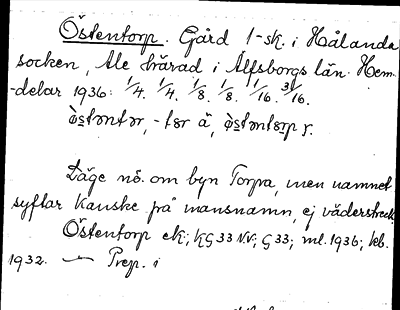 Östentorp. Gård 1-sk. i Hålanda
socken, Ale härad i Älfsborgs län. Hem-
-delar 1936: 1/4. 1/4. 1/8. 1/8. 1/16. 3/16.
Läge nö. om byn Torpa, men namnet
syftar kanske på mansnamn, ej väderstreck.
Östentorp ek; KG 33 NV; G 33; ml. 1936; kb.
1932. — Prep. i